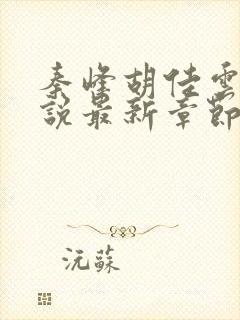 秦峰胡佳雲
說最新章節
沅蘇